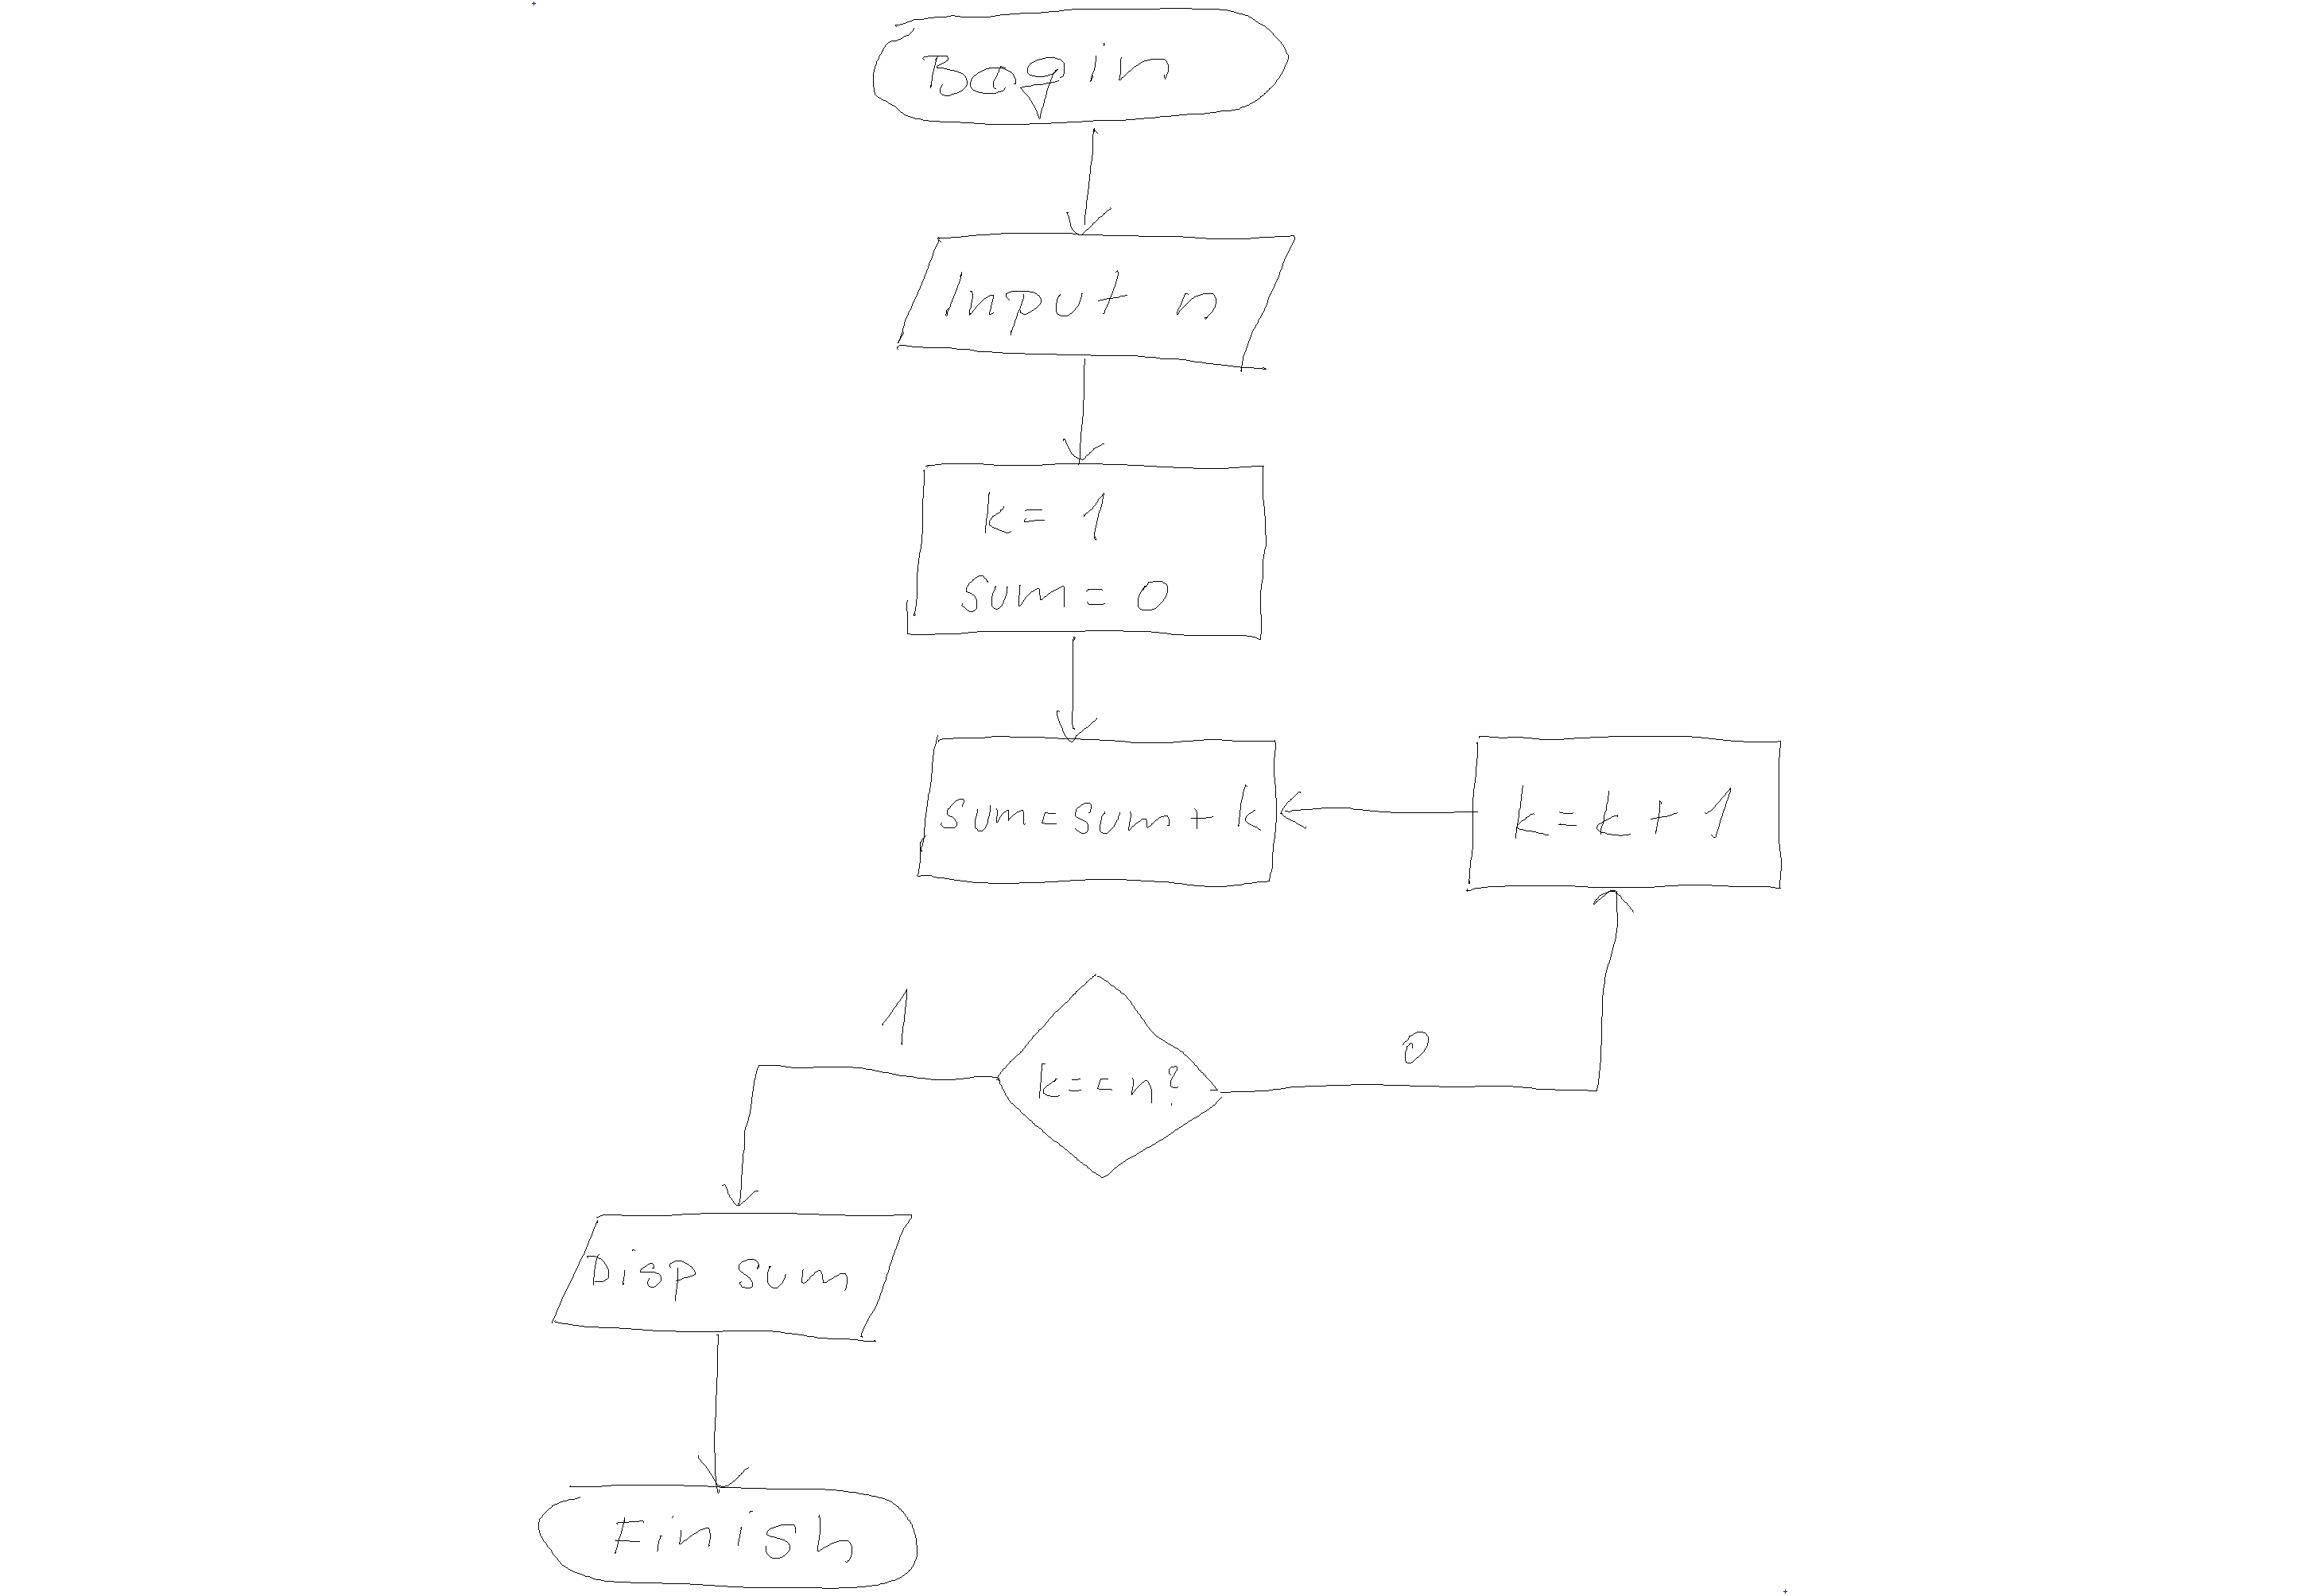 Bagin
Input n
k = 1
sum = 0
sum = sum + k
k = k + 1
1
0
k == n?
Disp sum
Finish